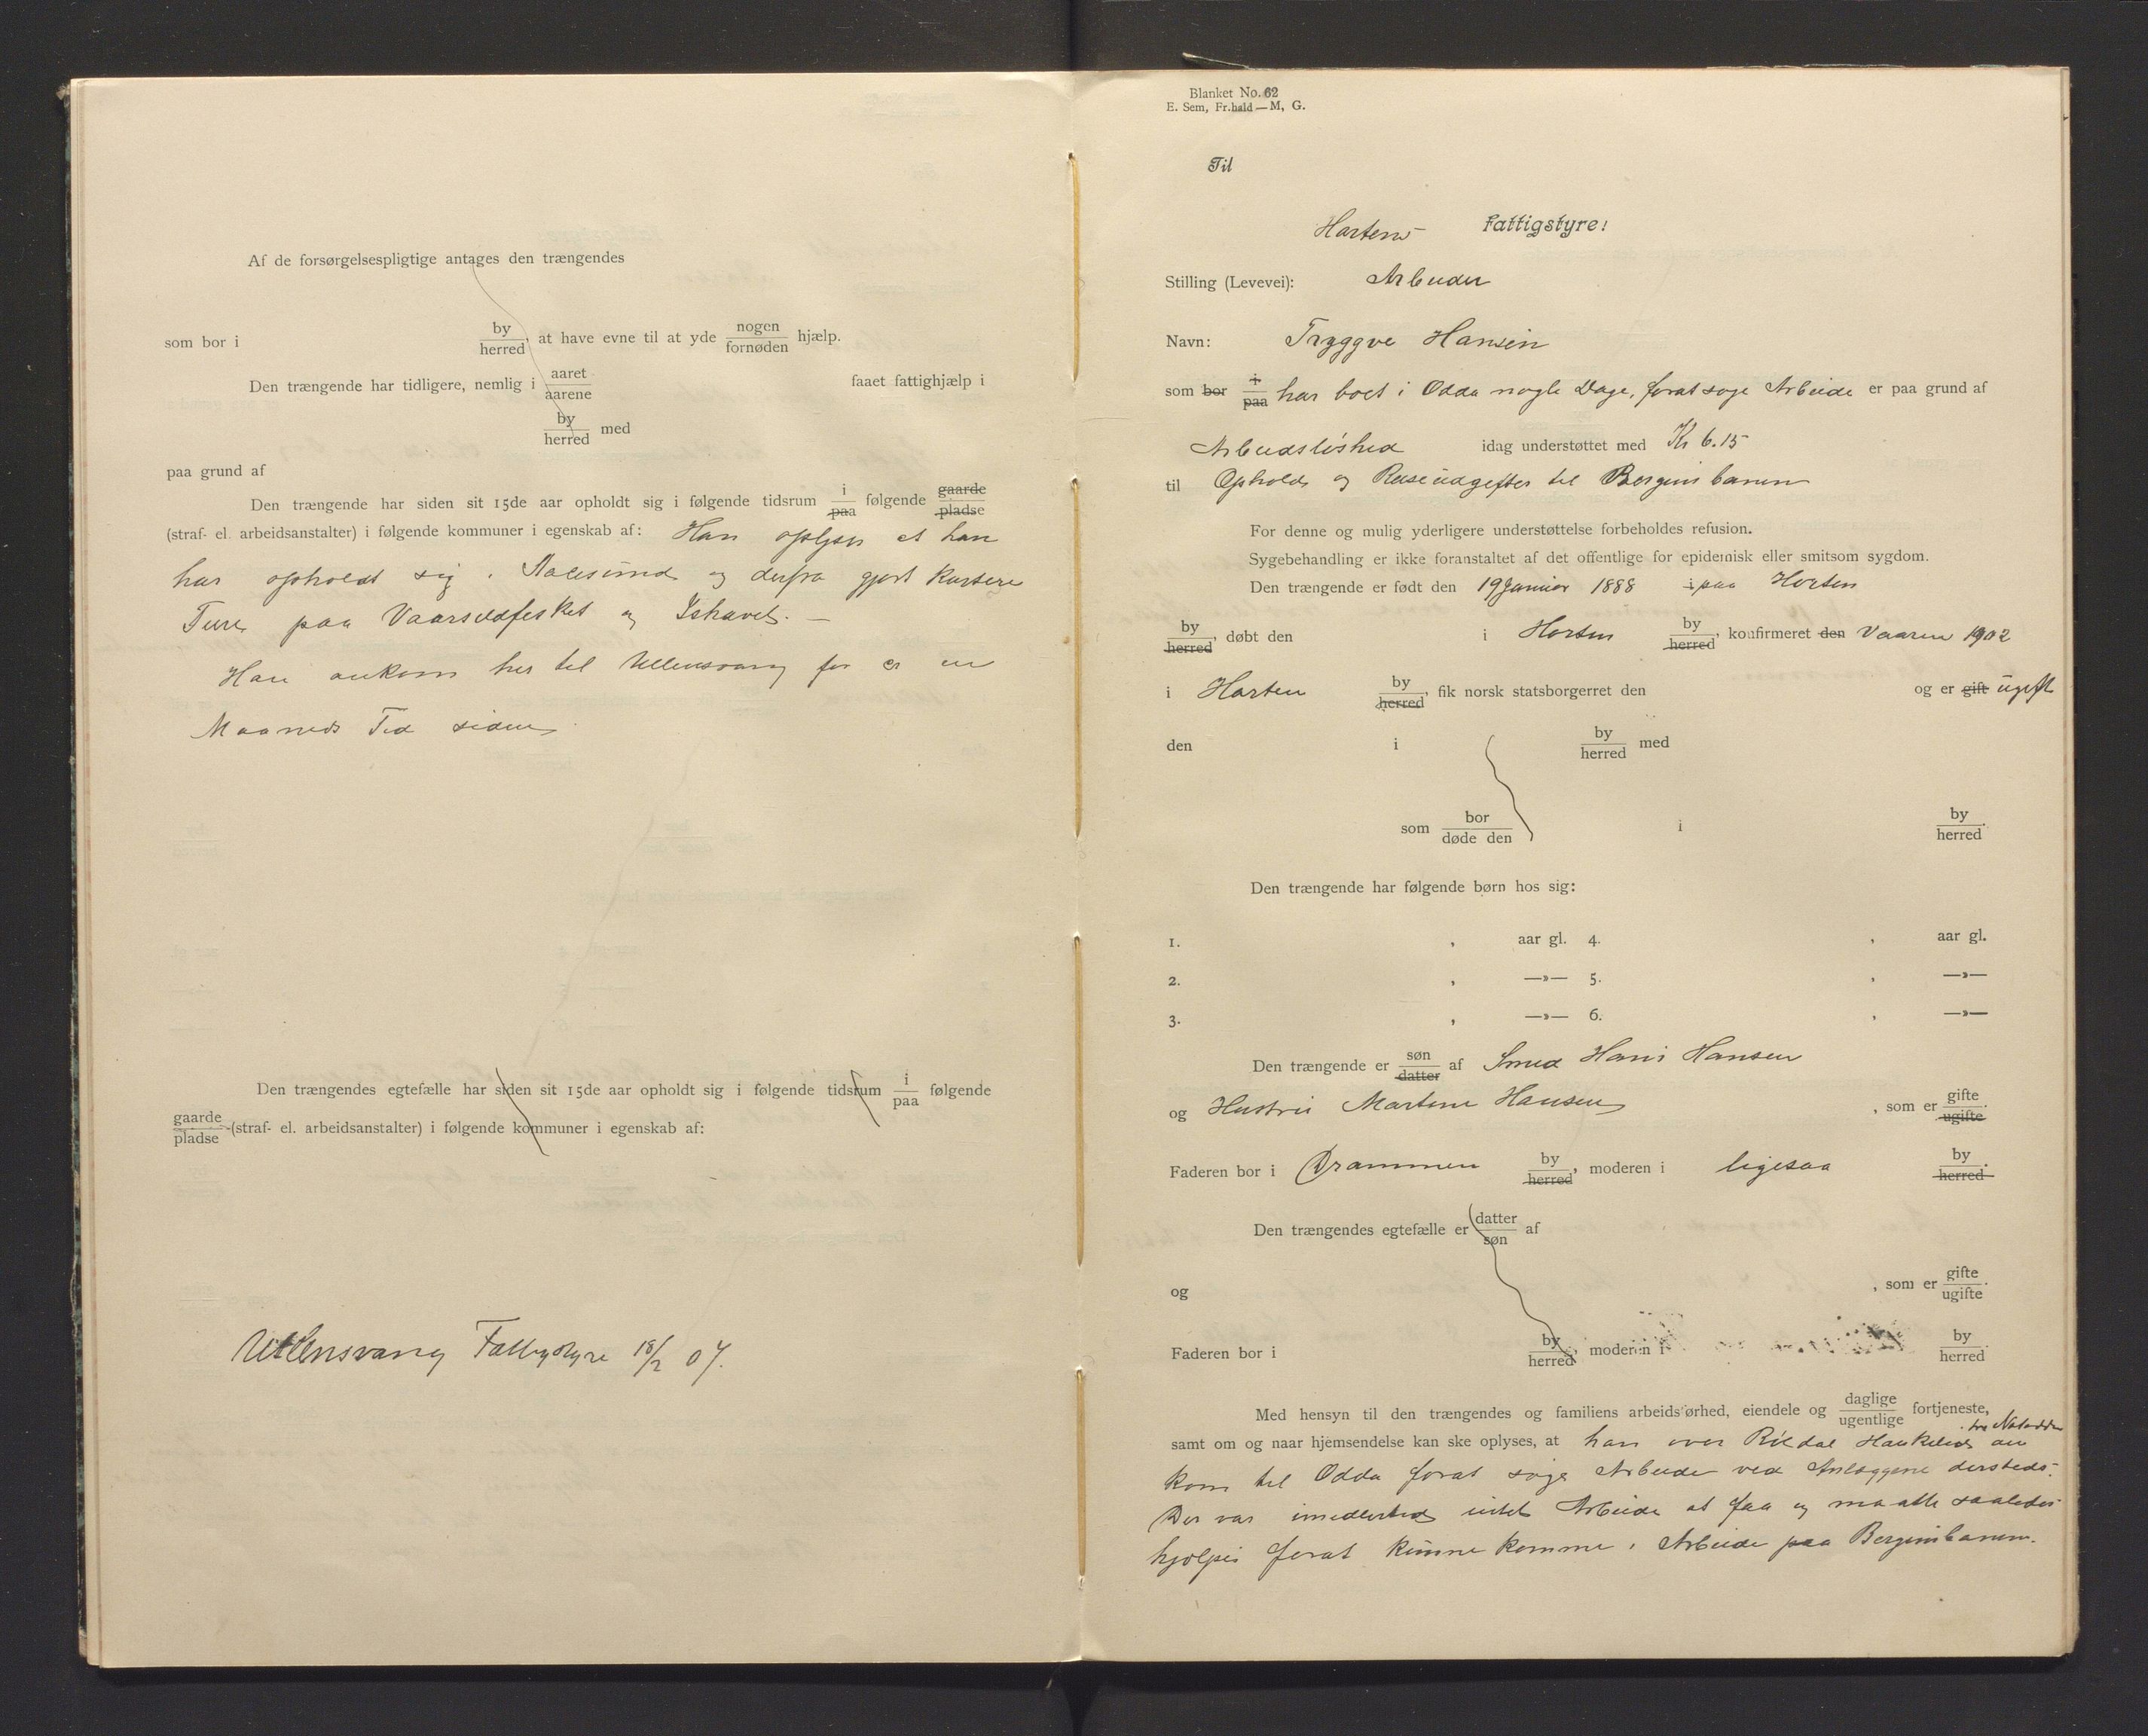 Af de forsørgelsespligtige antages den trængendes
som bor i by herred, at have evne til at yde nogen fornøden hjælp.
Den trængende har tidligere, nemlig i aaret aarene faaet fattighjælp i
by herred med
paa grund af
Den trængende har siden sit 15de aar opholdt sig i følgende tidsrum i paa følgende gaarde pladse
(straf- el. arbeidsanstalter) i følgende kommuner i egenskab af: Han oplyser at han
har opholdt sig i Aalesund og derfra gjort kortere
Ture paa Vaarsildfisket og Ishavet. —
Han ankom her til Ullensvang for er en
Maaneds Tid siden
Den trængendes egtefælle har siden sit 15de aar opholdt sig i følgende tidsrum i paa følgende
gaarde pladse (straf- el. arbeidsanstalter) i følgende kommuner i egenskab af:
Ullensvang Fattigstyre 18/2 07.
Blanket No. 62
E. Sem, Fr.hald — M, G.
Til
Hortens Fattigstyre!
Stilling (Levevei): Arbeider
Navn: Tryggve Hansen
som bor i paa har boet i Odda nogle Dage, forat søge Arbeide er paa grund af
Arbeidsløshed idag understøttet med Kr 6.15
til Ophold og Reiseudgifter til Bergensbanen
For denne og mulig yderligere understøttelse forbeholdes refusion.
Sygebehandling er ikke foranstaltet af det offentlige for epidemisk eller smitsom sygdom.
Den trængende er født den 19 Januar 1888 i paa Horten
by herred, døbt den i Horten by herred, konfirmeret den Vaaren 1902
i Horten by herred, fik norsk statsborgerret den og er gift ugift
den i by herred med
som bor døde den i by herred.
Den trængende har følgende børn hos sig:
1. , aar gl. 4. , aar gl.
2. , —»— 5. , —»—
3. , —»— 6. , —»—
Den trængende er søn datter af Smed Hans Hansen
og Hustru Martine Hansen , som er gifte ugifte.
Faderen bor i Drammen by herred, moderen i ligesaa by herred.
Den trængendes egtefælle er datter søn af
og , som er gifte ugifte.
Faderen bor i by herred, moderen i by herred.
Med hensyn til den trængendes og familiens arbeidsørhed, eiendele og daglige ugentlige fortjeneste,
samt om og naar hjemsendelse kan ske oplyses, at han over Røldal Haukelid fra Notodden an
kom til Odda forat søge Arbeide ved Anlæggene dersteds.
Der var imedlertid intet Arbeide at faa og maatte saaledes
hjælpes forat kunne komme i Arbeide paa Bergensbanen.